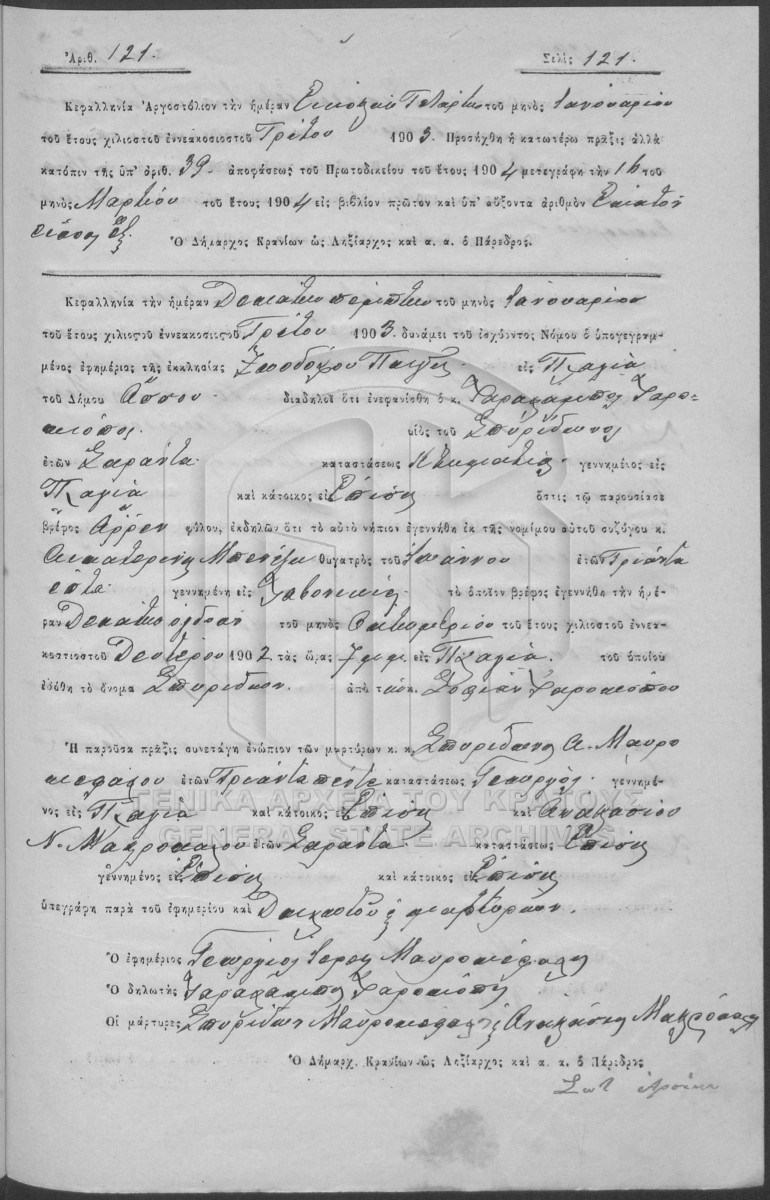 Ἀριθ. 121. Σελὶς 121.
Κεφαλληνία Ἀργοστόλιον τὴν ἡμέραν Εἰκοστὴν Τετάρτην τοῦ μηνὸς Ἰανουαρίου
τοῦ ἔτους χιλιοστοῦ ἐννεακοσιοστοῦ Τρίτου 1903. Προσήχθη ἡ κατωτέρω πρᾶξις ἀλλὰ
κατόπιν τῆς ὑπ' ἀριθ. 39 ἀποφάσεως τοῦ Πρωτοδικείου τοῦ ἔτους 1904 μετεγράφη τὴν 16 τοῦ
μηνὸς Μαρτίου τοῦ ἔτους 1904 εἰς βιβλίον πρῶτον καὶ ὑπ' αὔξοντα ἀριθμὸν Ἑκατὸν
Ὁ Δήμαρχος Κρανίων ὡς Ληξίαρχος καὶ α. α. ὁ Πάρεδρος.
Κεφαλληνία τὴν ἡμέραν Δεκάτην πέμπτην τοῦ μηνὸς Ἰανουαρίου
τοῦ ἔτους χιλιοστοῦ ἐννεακοσιοστοῦ Τρίτου 1903. δυνάμει τοῦ ἰσχύοντος Νόμου ὁ ὑπογεγραμ-
μένος ἐφημέριος τῆς ἐκκλησίας Ζωοδόχου Πηγῆς εἰς Πλαγιὰ
τοῦ Δήμου Ἄσσου διαδηλοῖ ὅτι ἐνεφανίσθη ὁ κ. Χαράλαμπος
υἱὸς τοῦ Σπυρίδωνος
ἐτῶν Σαράντα καταστάσεως Κτηματίας γεννημένος εἰς
Πλαγιὰ καὶ κάτοικος εἰς Ἐπίσης ὅστις τῷ παρουσίασε
βρέφος Ἄρρεν φύλου, ἐκδηλῶν ὅτι τὸ αὐτὸ νήπιον ἐγεννήθη ἐκ τῆς νομίμου αὐτοῦ συζύγου κ.
Αἰκατερίνης θυγατρὸς τοῦ Ἰωάννου ἐτῶν Τριάντα
ἑπτὰ γεννημένη εἰς τὸ ὁποῖον βρέφος ἐγεννήθη τὴν ἡμέ-
ραν Δεκάτην ὀγδόην τοῦ μηνὸς Ὀκτωμβρίου τοῦ ἔτους χιλιοστοῦ ἐννεα-
κοστιοστοῦ Δευτέρου 1902 τὰς ὥρας 7 μμ. εἰς Πλαγιὰ. τοῦ ὁποίου
ἐδόθη τὸ ὄνομα Σπυρίδων. ἀπὸ τὴν κ. Σοφίαν
Ἡ παροῦσα πρᾶξις συνετάγη ἐνώπιον τῶν μαρτύρων κ. κ. Σπυρίδωνος Α. Μαυρο
κεφάλου ἐτῶν Τριάντα πέντε καταστάσεως Γεωργὸς. γεννημέ-
νος εἰς Πλαγιὰ καὶ κάτοικος εἰς Ἐπίσης καὶ Ἀνακασίου
ΓΕΝΙΚΑ ΑΡΧΕΙΑ ΤΟΥ ΚΡΑΤΟΥΣ
GENERAL STATE ARCHIVES
Ν. ἐτῶν Σαράντα καταστάσεως Ἐπίσης
γεννημένος εἰς Ἐπίσης καὶ κάτοικος εἰς Ἐπίσης
ὑπεγράφη παρὰ τοῦ ἐφημερίου καὶ μαρτύρων.
Ὁ ἐφημέριος Γεώργιος Ἱερεὺς Μαυροκέφαλος
Ὁ δηλωτὴς Χαράλαμπος
Οἱ μάρτυρες Σπυρίδων Μαυροκέφαλος
Ὁ Δήμαρχ. Κρανίων ὡς Ληξίαρχος καὶ α. α. ὁ Πάρεδρος